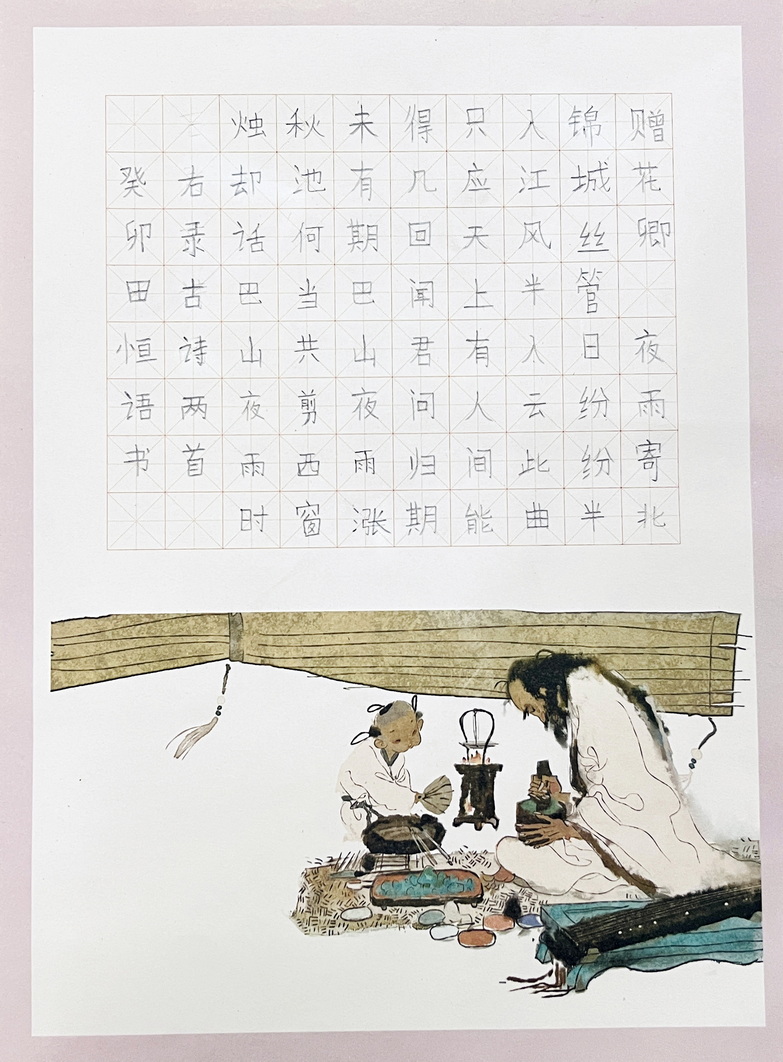 赠花卿 夜雨寄北
锦城丝管日纷纷半
入江风半入云此曲
只应天上有人间能
得几回闻君问归期
未有期巴山夜雨涨
秋池何当共剪西窗
烛却话巴山夜雨时
右录古诗两首
癸卯田恒语书